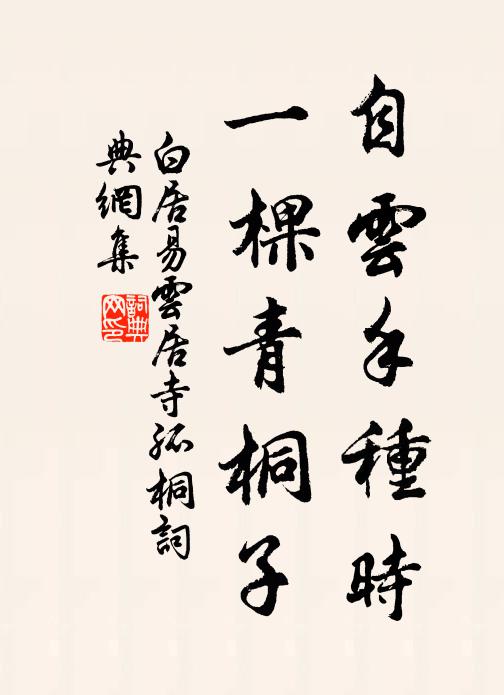 自雲手種時
一棵青桐子
白居易雲居寺孤桐詞
典網集
詞典
网印